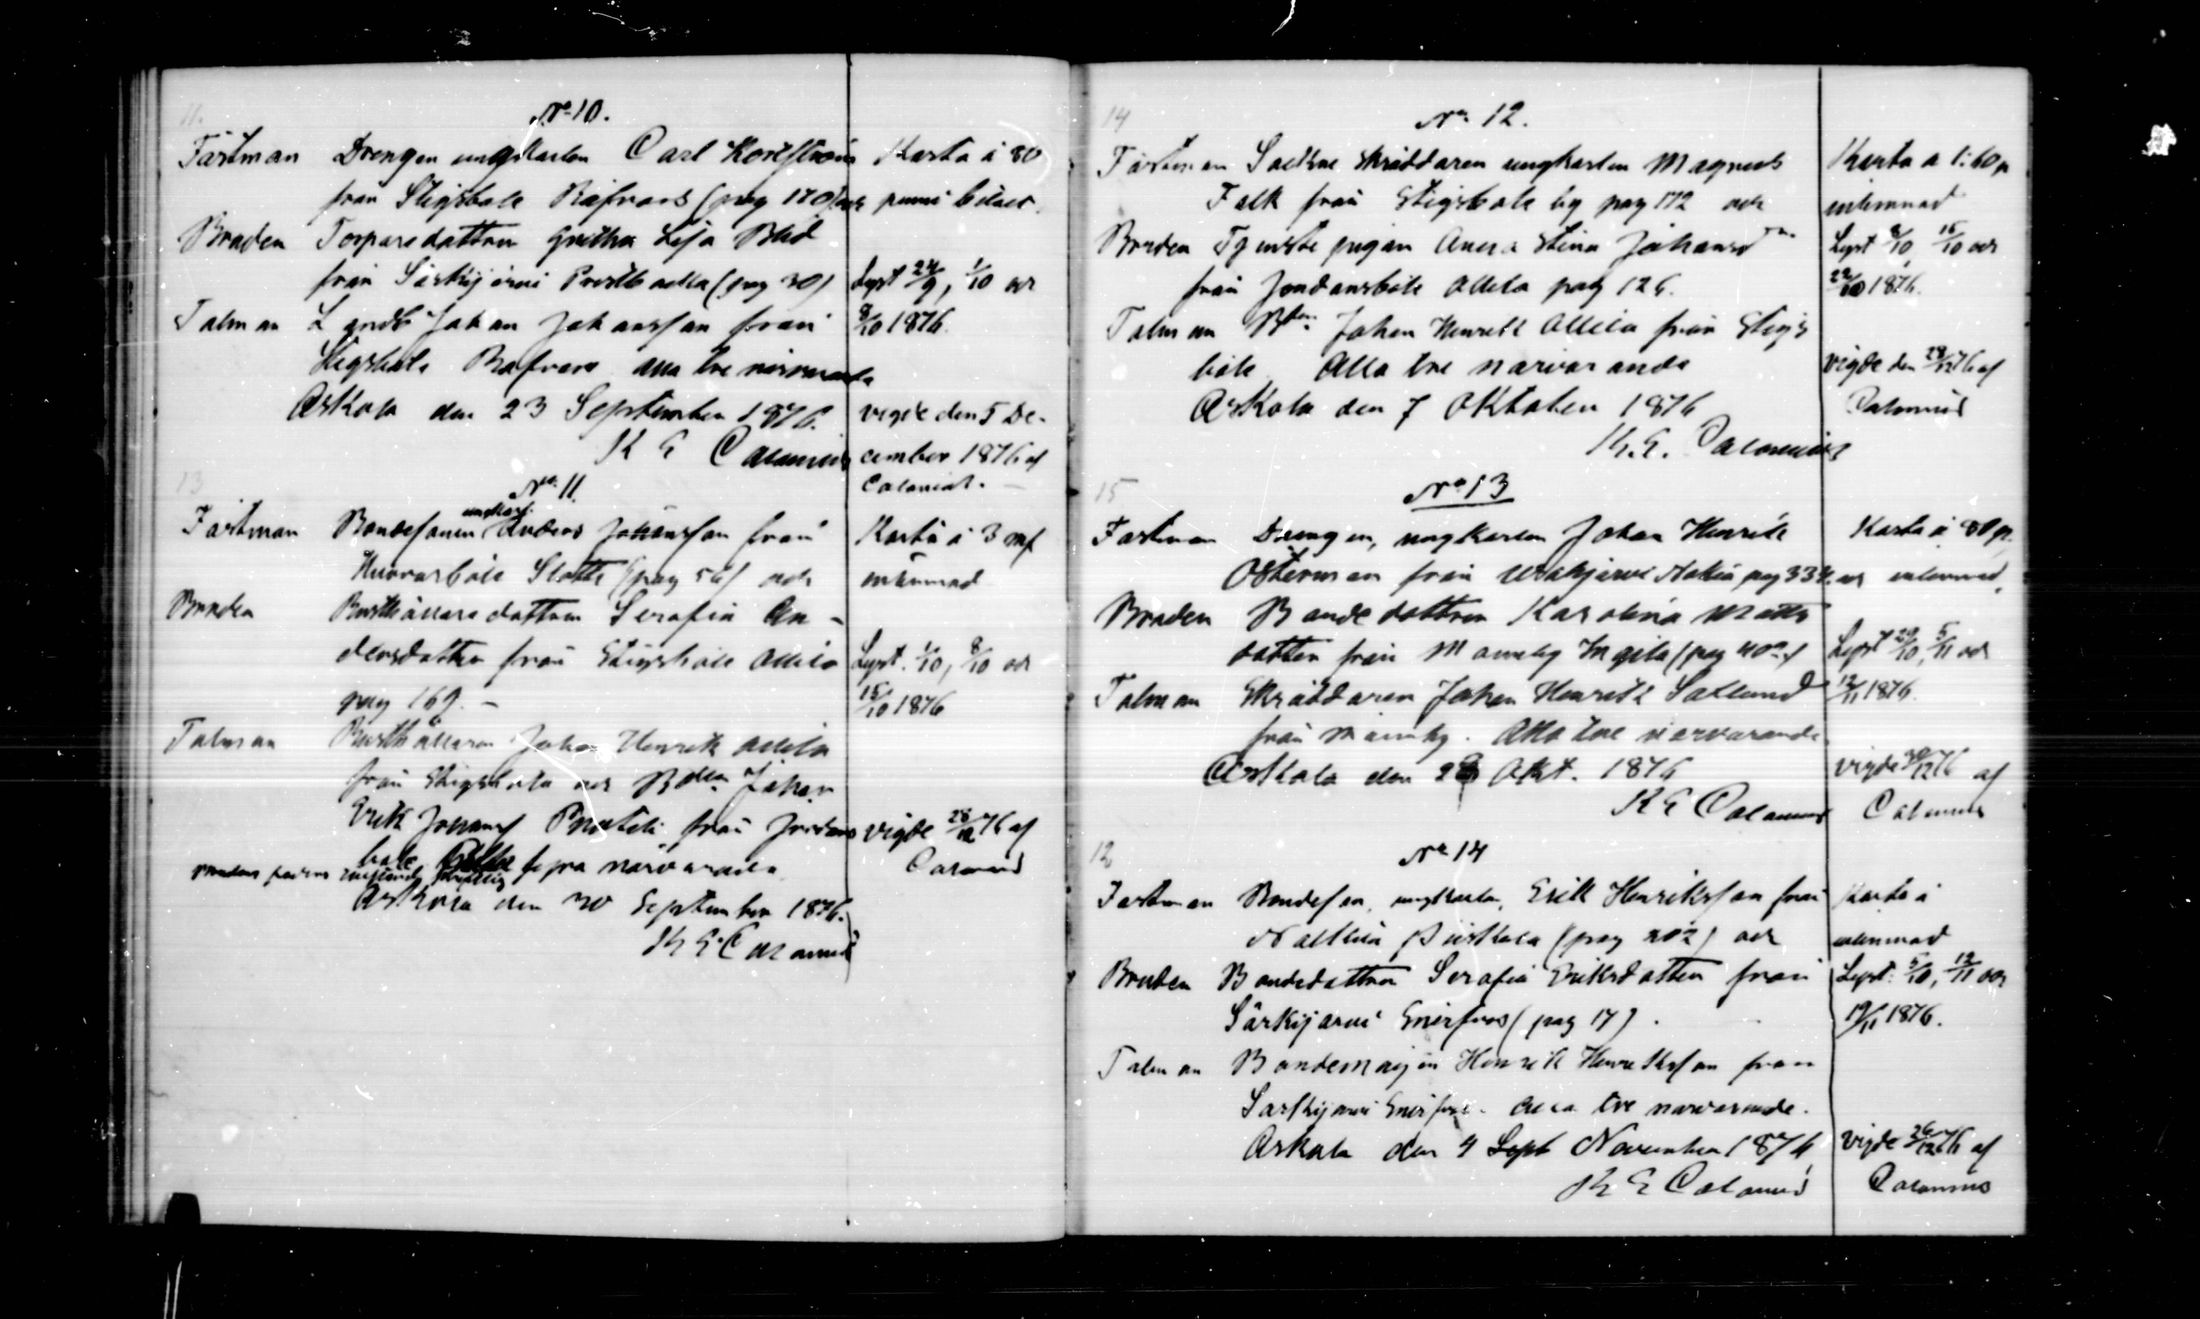 11.
No 10.
Fästman Drengen ungkarlen Carl Korsström
från Stigsböle Räfvars (pag 170) och
Bruden Torparedottren Gretha Lisa Blid
från Särkijärvi Prestbacka (pag 30)
Talman Landb Johan Johansson från
Stigsböle Räfvars alla tre närvarande
Askola den 23 September 1876.
K E Calamnius
Karta à 80
penni bilad.
Lyst 24/9, 1/10 och
8/10 1876.
vigde den 5 De-
cember 1876 af
Calamnius.
13
No 11.
ungkarl.
Fästman Bondesonen Anders Johansson från
Huvvarböle Slotte (pag 56) och
Bruden Rusthållaredottren Serafia An-
dersdotter från Stigsböle Allila
pag 169. -
Talman Rusthållaren Johan Henrik Allila
från Stigsböle och Bden Johan
Erik Johansf från Jordans
böle fyra närvarande.
Brudens faders
Askola den 30 September 1876.
K E Calamnius
Karta à 3 mf
inlemnad
Lyst. 1/10, 8/10 och
15/10 1876
vigde 28/12 76 af
Calamnius
14
No 12.
Fästman Sockne skräddaren ungkarlen Magnus
Falk från Stigsböle by pag 172 och
Bruden Tjenstepigan Anna Stina Johansd
från Jordansböle Allila pag 126.
Talman Bden Johan Henrik Allila från Stigs
böle Alla tre närvarande
Askola den 7 Oktober 1876
K. E. Calamnius
Karta a 1: 60 p
inlemnad
Lyst 8/10, 15/10 och
22/10 1876.
Vigde den 28/12 76 af
Calamnius
15
No 13
Fästman Drengen, ungkarlen Johan Henrik
Österman från pag 334. och
Bruden Bondedottren Karolina Matts
dotter från Monnby Ingila (pag
Talman Skräddaren Johan Henrik Saxlund
från Monnby. Alla tre närvarande.
Askola den 28 Okt. 1876
K E Calamnius
Karta à 80 p.
inlemnad.
Lyst 29/10, 5/11 och
12/11 1876.
vigde 30/12 76 af
Calamnius
12
No 14
Fästman Bondeson, ungkarlen, Erik Henriksson från
Nalkkila (pag 202) och
Bruden Bondedottren Serafia Eriksdotter från
Särkijärvi Enifvars (pag 17).
Talman Bondemågen Henrik Henriksson från
Särkijärvi Enifvars. Alla tre närvarande.
Askola den 4 Sept November 1876
K E Calamnius
Karta à
inlemnad
Lyst. 5/10, 12/11 och
19/11 1876.
Vigde 26/12 76 af
Calamnius